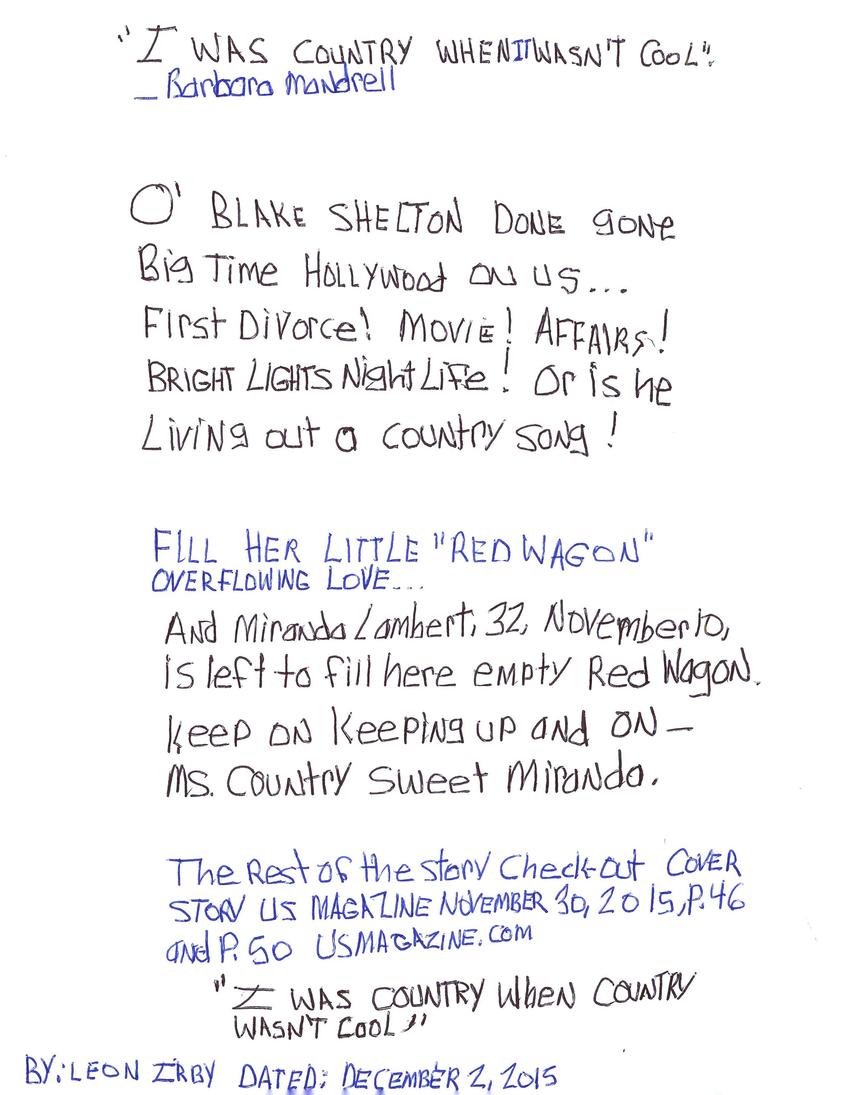 "I WAS COUNTRY WHEN IT WASN'T COOL".
— Barbara Mandrell
O' BLAKE SHELTON DONE gONe
Big Time HOLLYWOOd ON US...
First Divorce! MOVIE! AFFAIRS!
BRIGHT LIGHTS Night Life! Or is he
Living out a COUNtry SONg!
FILL HER LITTLE "RED WAGON"
OVERFLOWING LOVE...
ANd Miranda Lambert, 32, November 10,
is left to fill here empty Red Wagon.
Keep ON Keeping up and ON —
MS. COUNtry Sweet Miranda.
The Rest of the story Check-out COVER
STORY US MAGAZINE NOVEMBER 30, 2015, P. 46
ANd P. 50 USMAGAZINE.COM
"I WAS COUNTRY WheN COUNTRY
WASN'T COOL"
BY: LEON IRBY DATED: DECEMBER 2, 2015